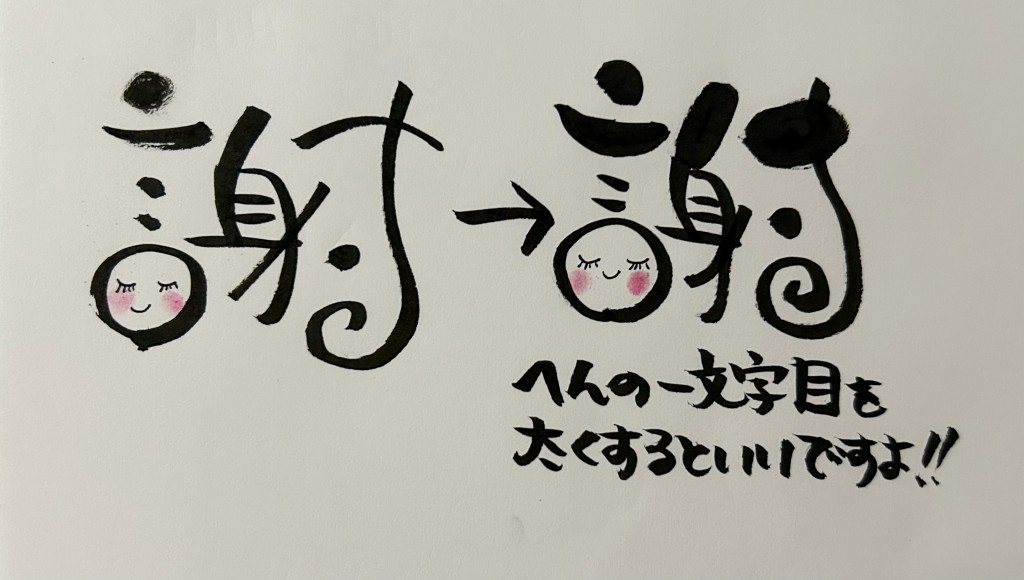 謝→謝
へんの一文字目を
太くするといいですよ!!